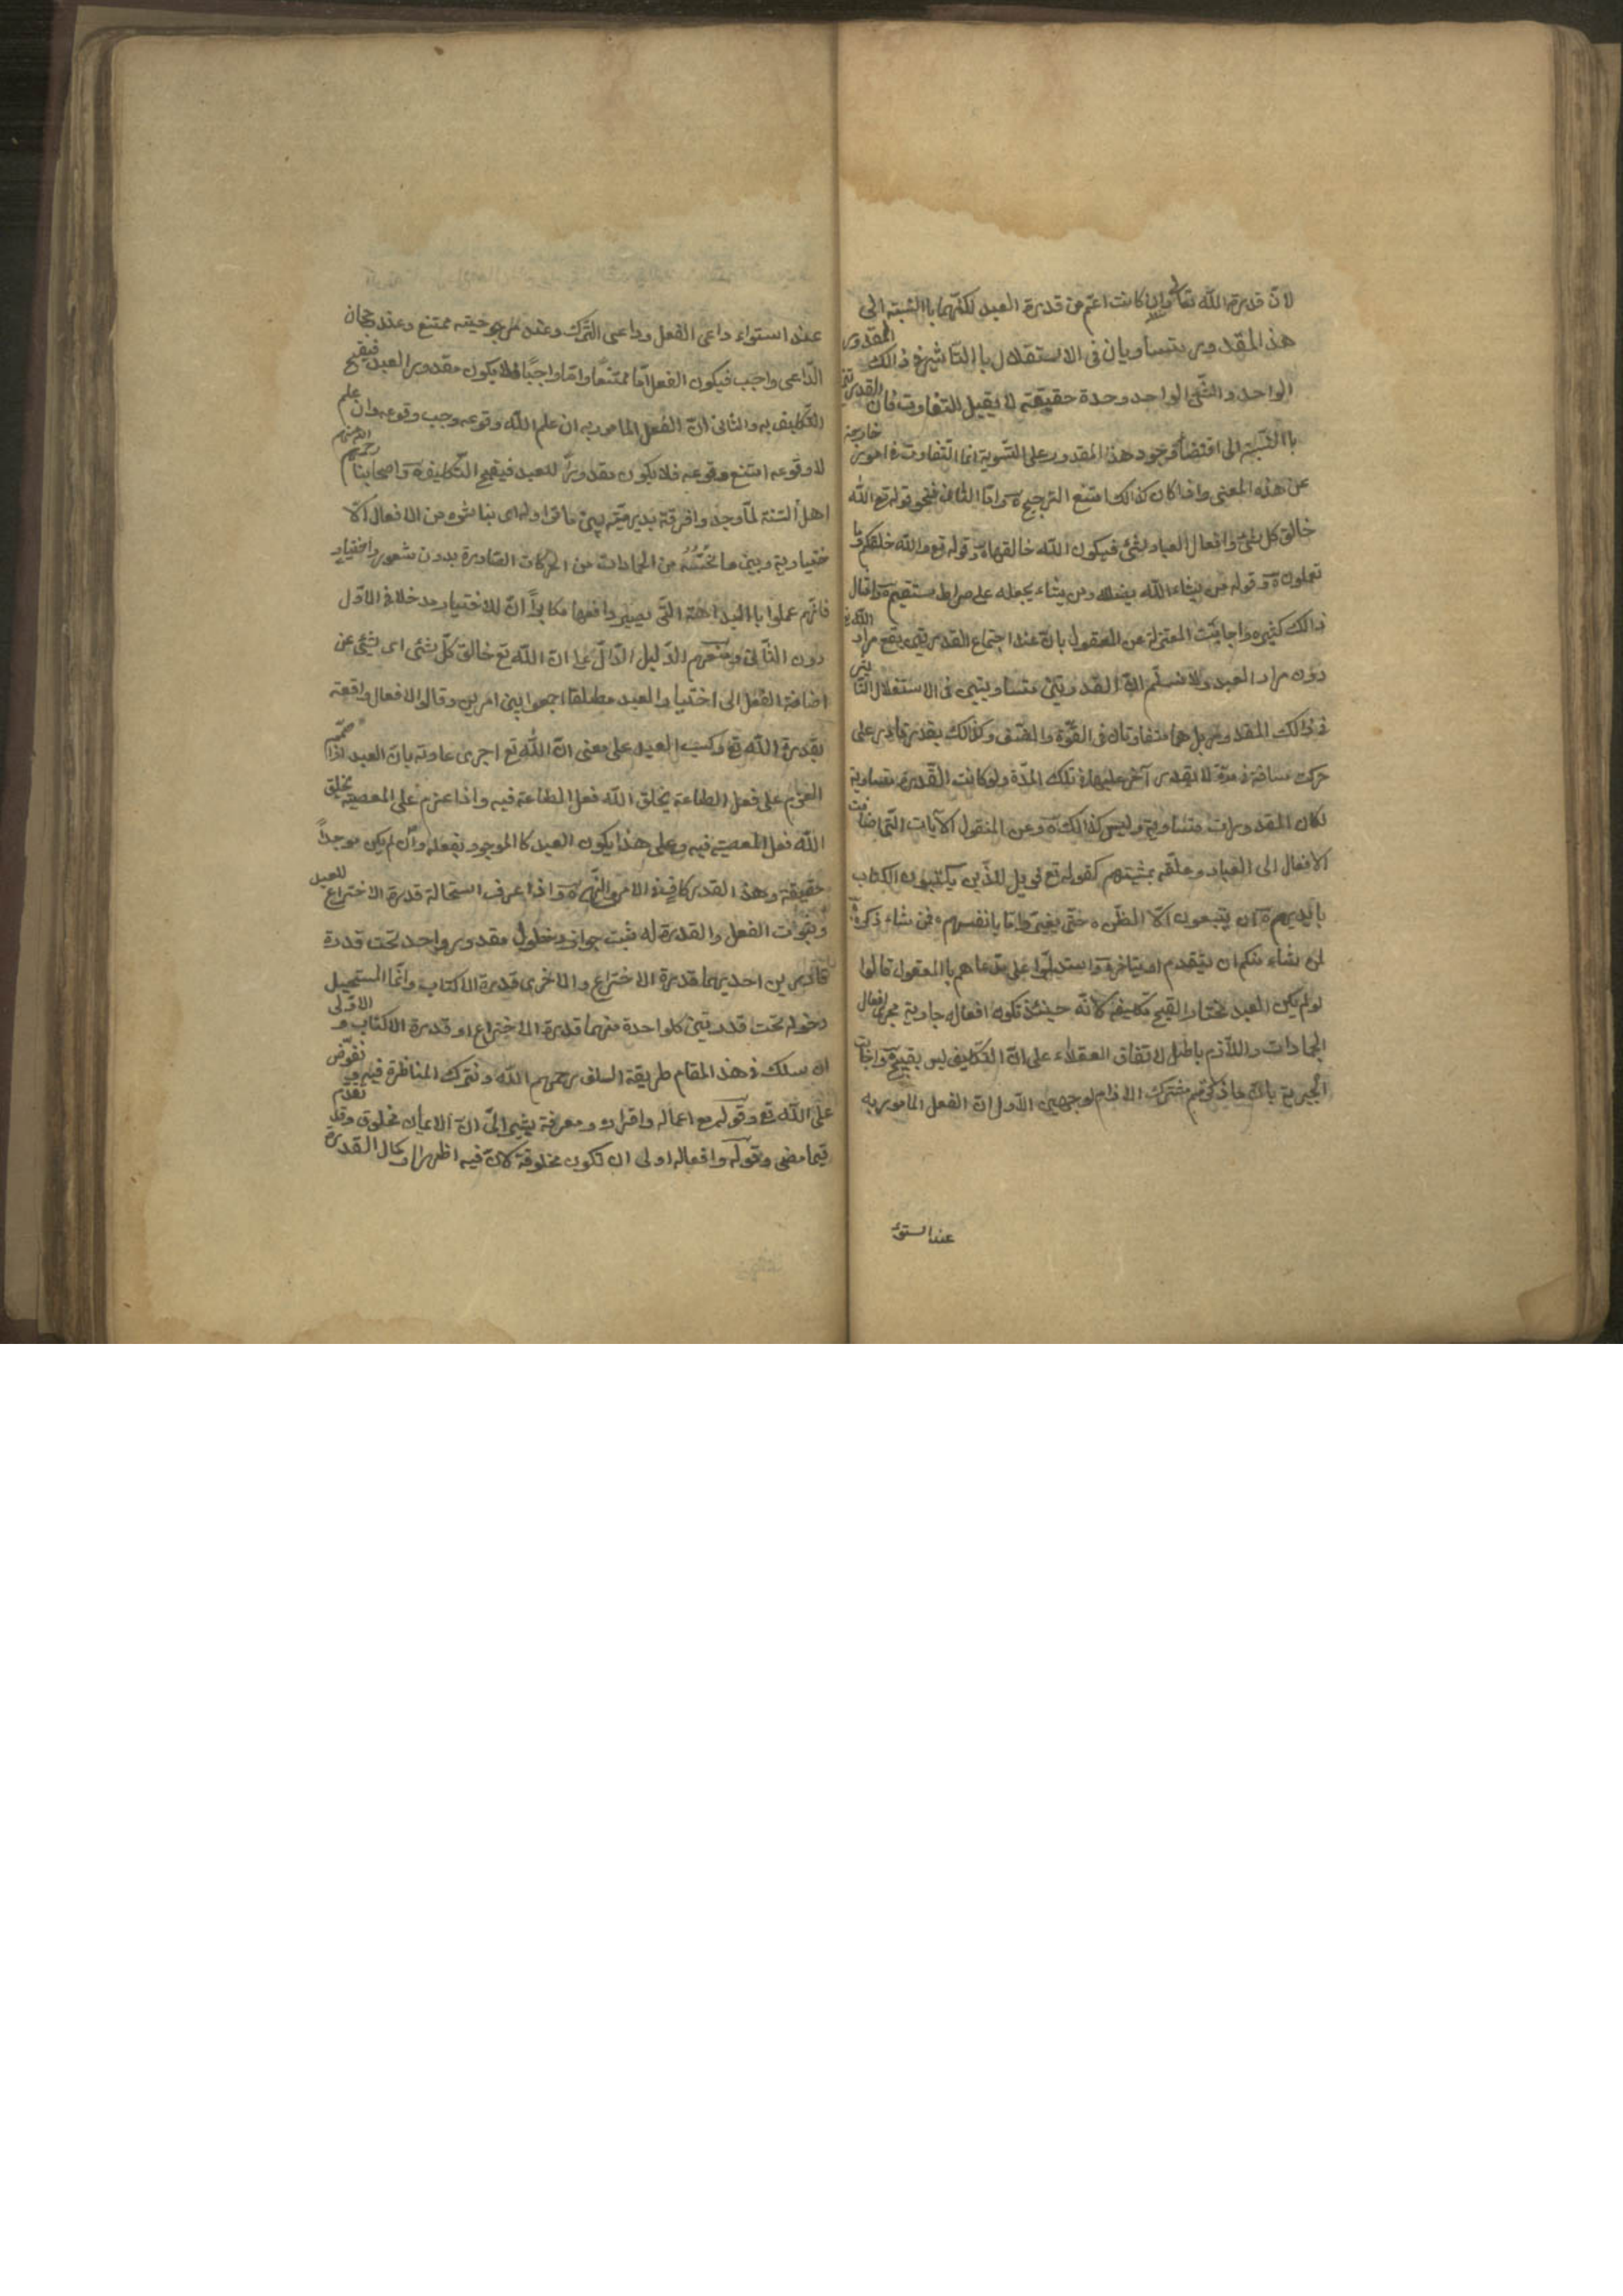 لانّ قدرة الله تعالى وان كانت اعمّ من قدرة العبد لكنّهما باالنّسبة الى
هذ المقدور يتساويان فى الاستقلال باالتّاثير فى ذالك المقدور
الواحد والشّئ الواحد وحدة حقيقة لا يقبل التفاوت فان القدرتين
باالنّسبة الى اقتضاء وجود هذا المقدور على السّوية انما التّفاوت فى امور خارجة
عن هذه المعنى واذا كان كذالك امتنع الترجيح وامّا الثانى فنحو قوله تع الله
خالق كل شئ وافعال العباد شئ فيكون الله خالقها وقوله تع والله خلقكم وما
تعملون وقوله من يشاء الله يضلله ومن يشاء يجعله على صراط مستقيم وامثال
ذالك كثيره واجابت المعتزلة عن المعقول بان عند اجتماع القدرتين يقع مراد الله تع
دون مراد العبد ولا نسلّم انّ القدرتين متساويتين فى الاستقلال التاثير
فى ذالك المقدور بل هما متفاوتان فى القوّة والضعف وكذالك يقدر قادر على
حركت مسافة فى مدّة لا يقدر آخر عليها فى تلك المدّة ولو كانت القدرة متساوية
لكان المقدورات متساوية وليس كذالك وعن المنقول الآيات التى اضافت
الافعال الى العباد وعلّقه بمشيتهم كقوله تع فويل للذّين يكتبون الكتاب
بايديهم ان يتبعون الّا الظنّ حتّى يغيّروا ما بانفسهم فمن شاء ذكره
لمن شاء منكم ان يتقدم او يتاخر واستدلّوا على مدّعاهم باالمعقول قالوا
لو لم يكن العبد مختارا لقبح تكليفه لانّه حينئذ تكون افعاله جارية مجرى افعال
الجمادات واللّازم باطل لاتفاق العقلاء على انّ التكليف ليس بقبيح واجابت
الجبرية بانّ ما ذكرتم مشترك الالزام لوجهين الاول انّ الفعل المامور به
عند استواء
عند استواء داعى الفعل وداعى التّرك وعند مرجوحيته ممتنع وعند رجحان
الدّاعى واجب فيكون الفعل امّا ممتنعا وامّا واجبًا فلا يكون مقدور العبد فيقبح
التّكليف به والثانى انّ الفعل المامور به ان علم الله وقوعه وجب وقوعه وان علم
لا وقوعه امتنع وقوعه فلا يكون مقدورًا للعبد فيقبح التّكليف واصحابنا رحمهم الله
اهل السّنة لمّا وجدوا فرقة بديهيّة بين ما نزاوله اى نباشره من الافعال الا
ختيارية وبين ما نحسّه من الجمادات من الحركات الصّادرة بدون شعور واختيار
فانّهم عملوا باالبداهة التّى يصير دافعها مكابرًا انّ للاختيار مدخلا فى الاوّل
دون الثّانى ومنعهم الدّليل الدّالّ على انّ الله تع خالق كلّ شئى اى شئى عن
اضافة الفعل الى اختيار العبد مطلقا اجمعوا بين امرين وقالوا الافعال واقعة
بقدرة الله تع وكسب العبد على معنى انّ الله تع اجرى عادته بان العبد اذا صمّم
العزم على فعل الطاعة يخلق الله فعل الطاعة فيه واذا عزم على المعصية يخلق
الله فعل المعصية فيه وعلى هذا يكون العبد كاالموجد لفعله وان لم يكن موجدًا
حقيقة وهذ القدر كاف فى الامر والنّهى واذا عرف استحالة قدرة الاختراع للعبد
وثبوت الفعل والقدرة له ثبت جواز دخول مقدور واحد تحت قدرة
قادرين احديهما قدرة الاختراع والاخرى قدرة الاكتاب وانّما المستحيل
دخوله تحت قدرتين كلواحدة منهما قدرة الاختراع او قدرة الاكتاب والاولى
ان نسلك فى هذ المقام طريقة السلف رحمهم الله ونترك المناظرة فيه ونفوّض
على الله تع وقوله مع اعماله واقراره ومعرفة الى انّ الاعيان مخلوق وقد تقدّم
فيما مضى وقوله وافعاله اولى ان تكون مخلوقة لانّ فيه اظهار كمال القدرة